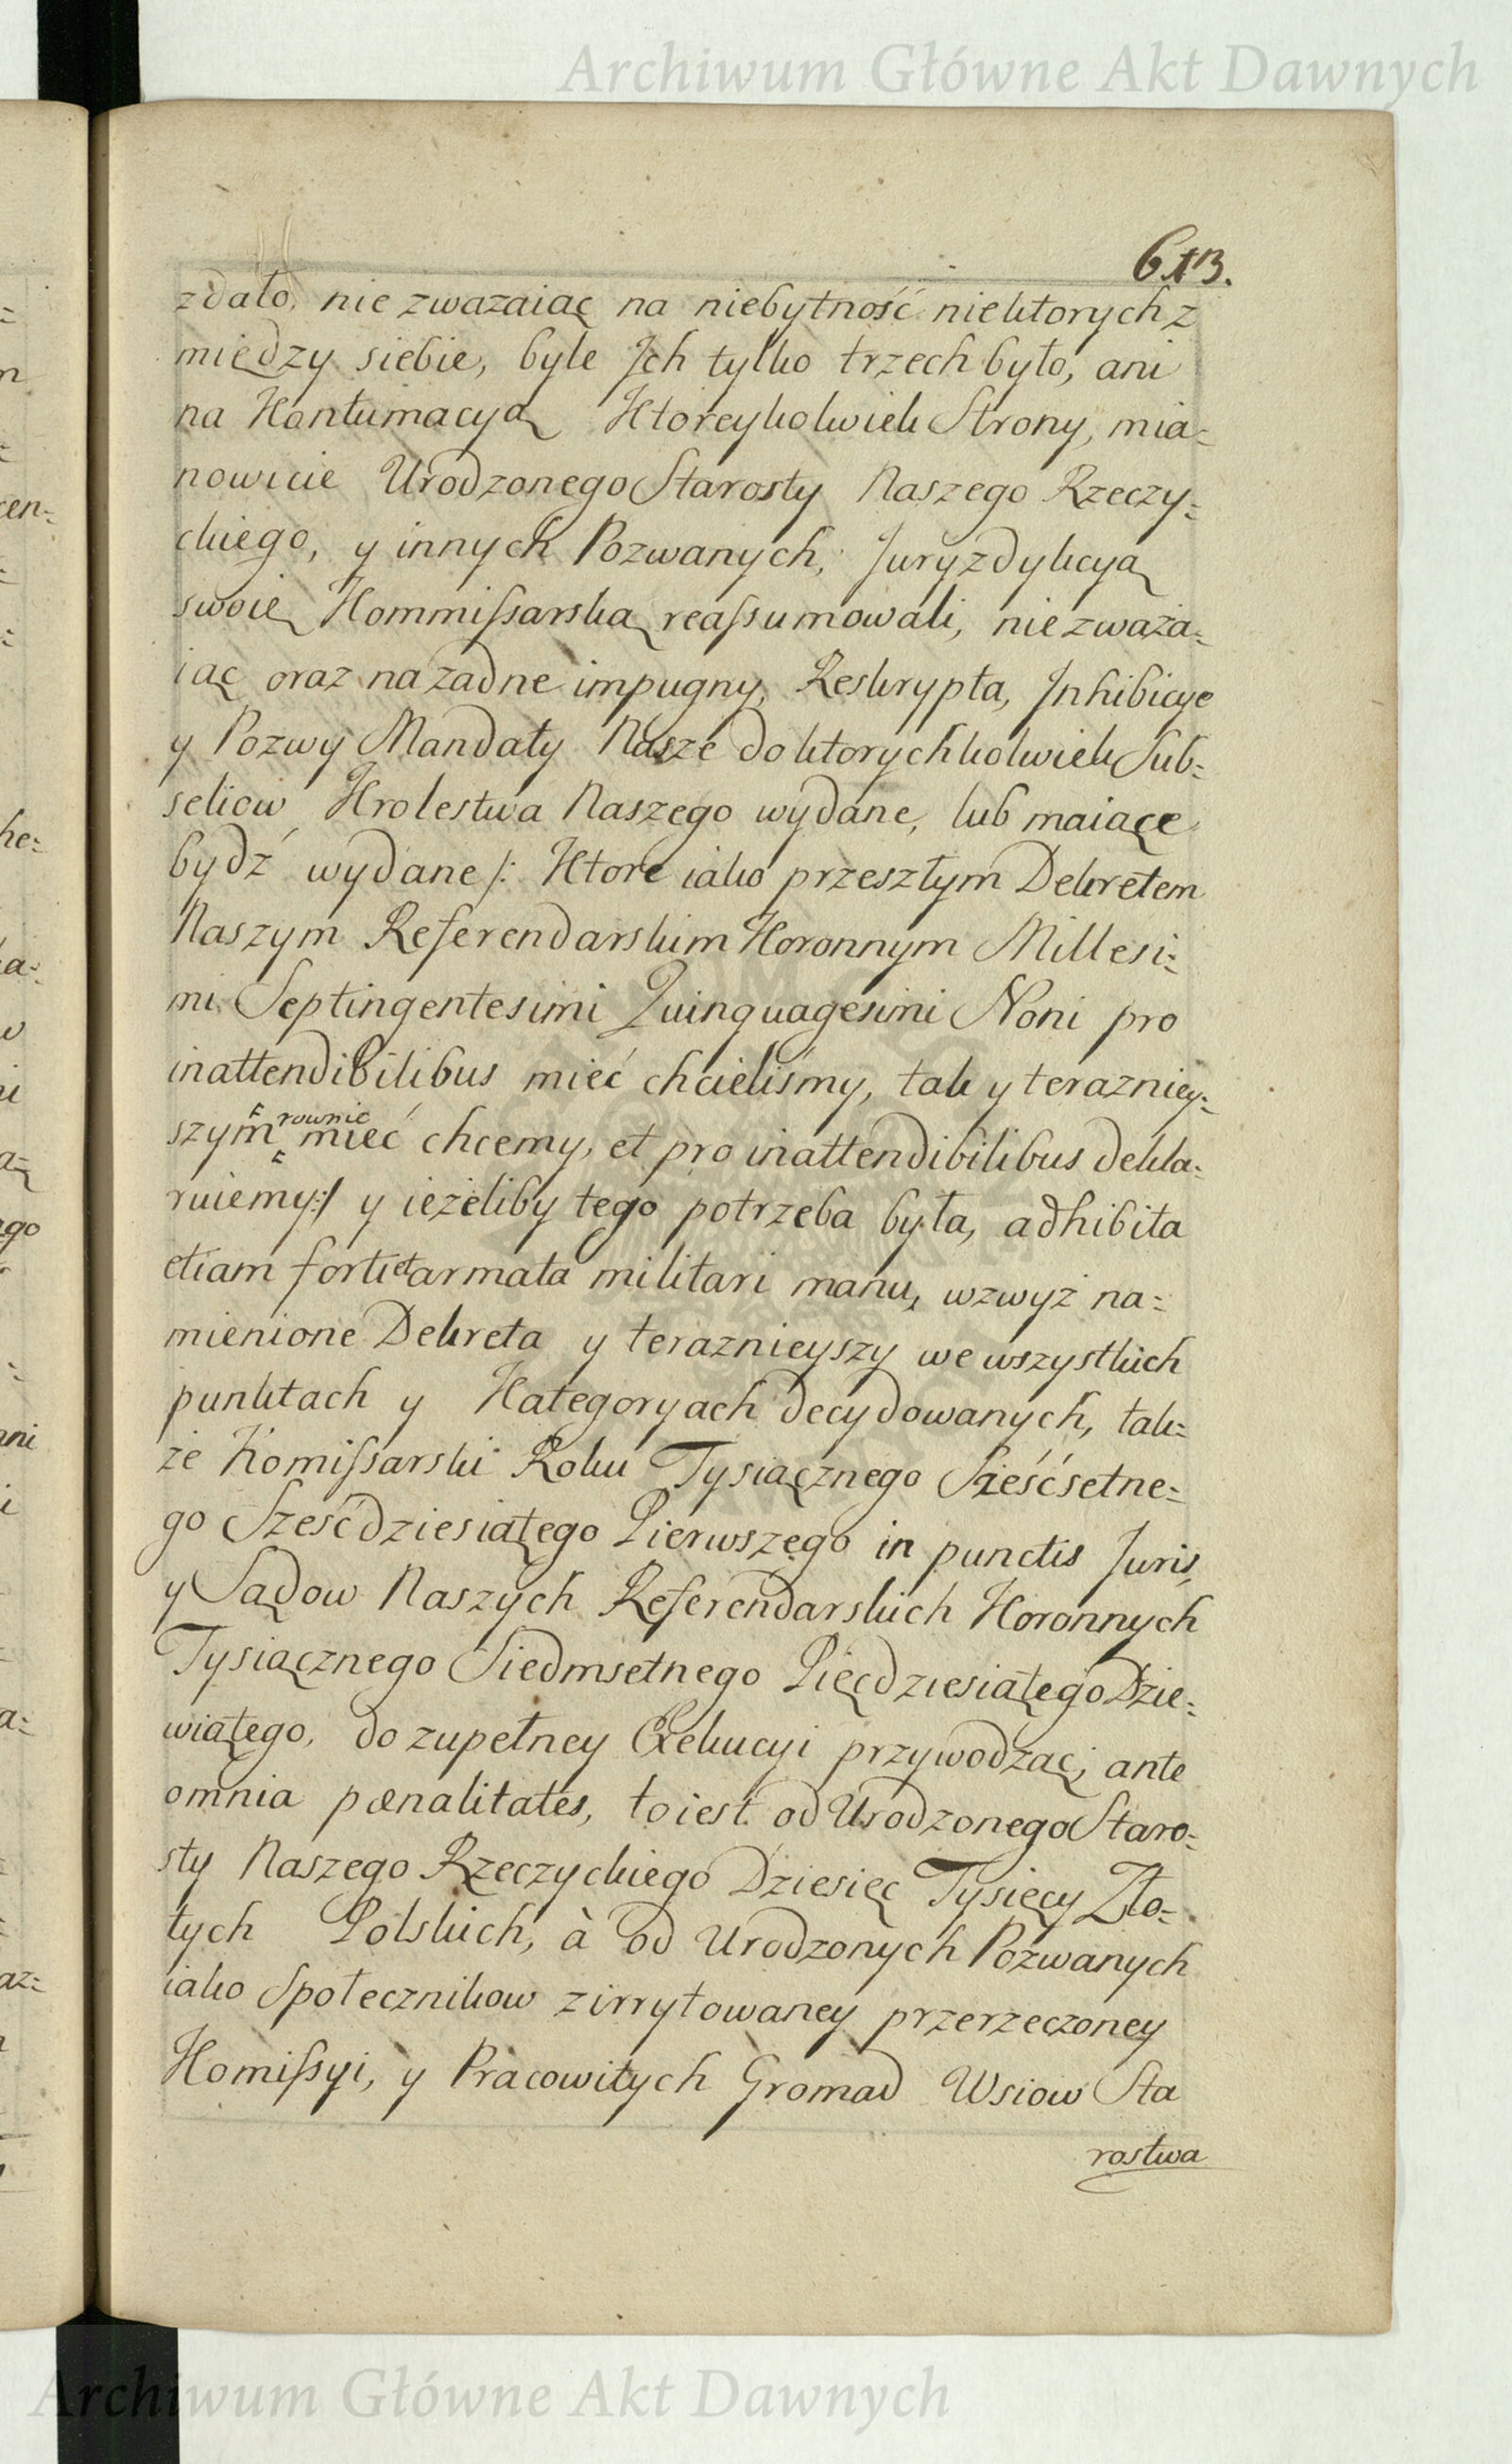 Archiwum Główne Akt Dawnych
613.
zdało, nie zwazaiąc na niebytność niektorych z
między siebie, byle Jch tylko trzech było, ani
na Kontumacyą Ktoreykolwiek Strony, mia=
nowicie Urodzonego Starosty Naszego Rzeczy=
ckiego, y innych Pozwanych, Juryzdykcyą
swoię Kommissarską reassumowali, nie zważa=
iąc oraz na żadne impugny, Reskrypta, Jnhibicye
y Pozwy Mandaty Nasze do ktorychkolwiek Sub=
seliow Krolestwa Naszego wydane, lub maiące
bydź wydane /: Ktore iako przeszłym Dekretem
Naszym Referendarskim Koronnym Millesi=
mi Septingentesimi Quinquagesimi Noni pro
inattendibilibus mieć chcieliśmy, tak y terazniey=
szym rownie mieć chcemy, et pro inattendibilibus dekla=
ruiemy:/ y ieżeliby tego potrzeba była, adhibita
etiam forti et armata militari manu, wzwyż na=
mienione Dekreta y teraznieyszy we wszystkich
punktach y Kategoryach decydowanych, tak=
że Komissarski Roku Tysiącznego Sześćsetne=
go Sześćdziesiątego Pierwszego in punctis Juris,
y Sądow Naszych Referendarskich Koronnych
Tysiącznego Siedmsetnego Pięcdziesiątego Dzie=
wiątego, do zupełney Exekucyi przywodząc, ante
omnia pœnalitates, to iest od Urodzonego Staro=
sty Naszego Rzeczyckiego Dziesięc Tysięcy Zło=
tych Polskich, à od Urodzonych Pozwanych
iako Społecznikow zirrytowaney przerzeczoney
Komissyi, y Pracowitych Gromad Wsiow Sta
rostwa
Archiwum Główne Akt Dawnych